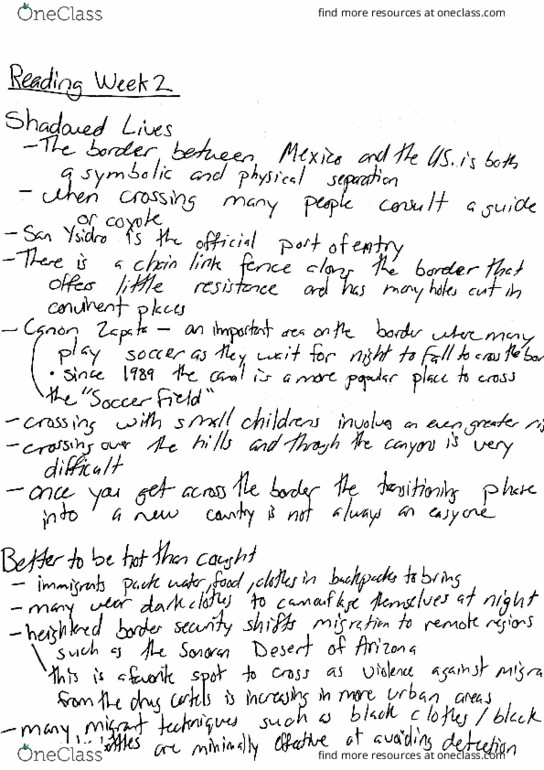 OneClass
find more resources at oneclass.com
Reading Week 2
Shadowed Lives
- The border between Mexico and the US. is both
a symbolic and physical separation
- when crossing many people consult a guide
or coyote
- San Ysidro is the official port of entry
- There is a chain link fence along the border that
offers little resistance and has many holes cut in
convinent places
- Canon Zapata - an important area on the border where many
play soccer as they wait for night to fall to cross the bor
• since 1989 the canal is a more popular place to cross
the "Soccer Field"
- crossing with small childrens involves an even greater ris
- crossing over the hills and through the canyons is very
difficult
- once you get across the border the transitioning phase
into a new country is not always an easy one
Better to be hot than caught
- immigrants pack water, food, clothes in backpacks to bring
- many wear dark clothes to camouflage themselves at night
- heightened border security shifts migration to remote regions
such as the Sonoran Desert of Arizona
this is a favorite spot to cross as violence against migra
from the drug cartels is increasing in more urban areas
- many migrant techniques such as black clothes / black
are minimally effective at avoiding detection
OneClass
find more resources at oneclass.com